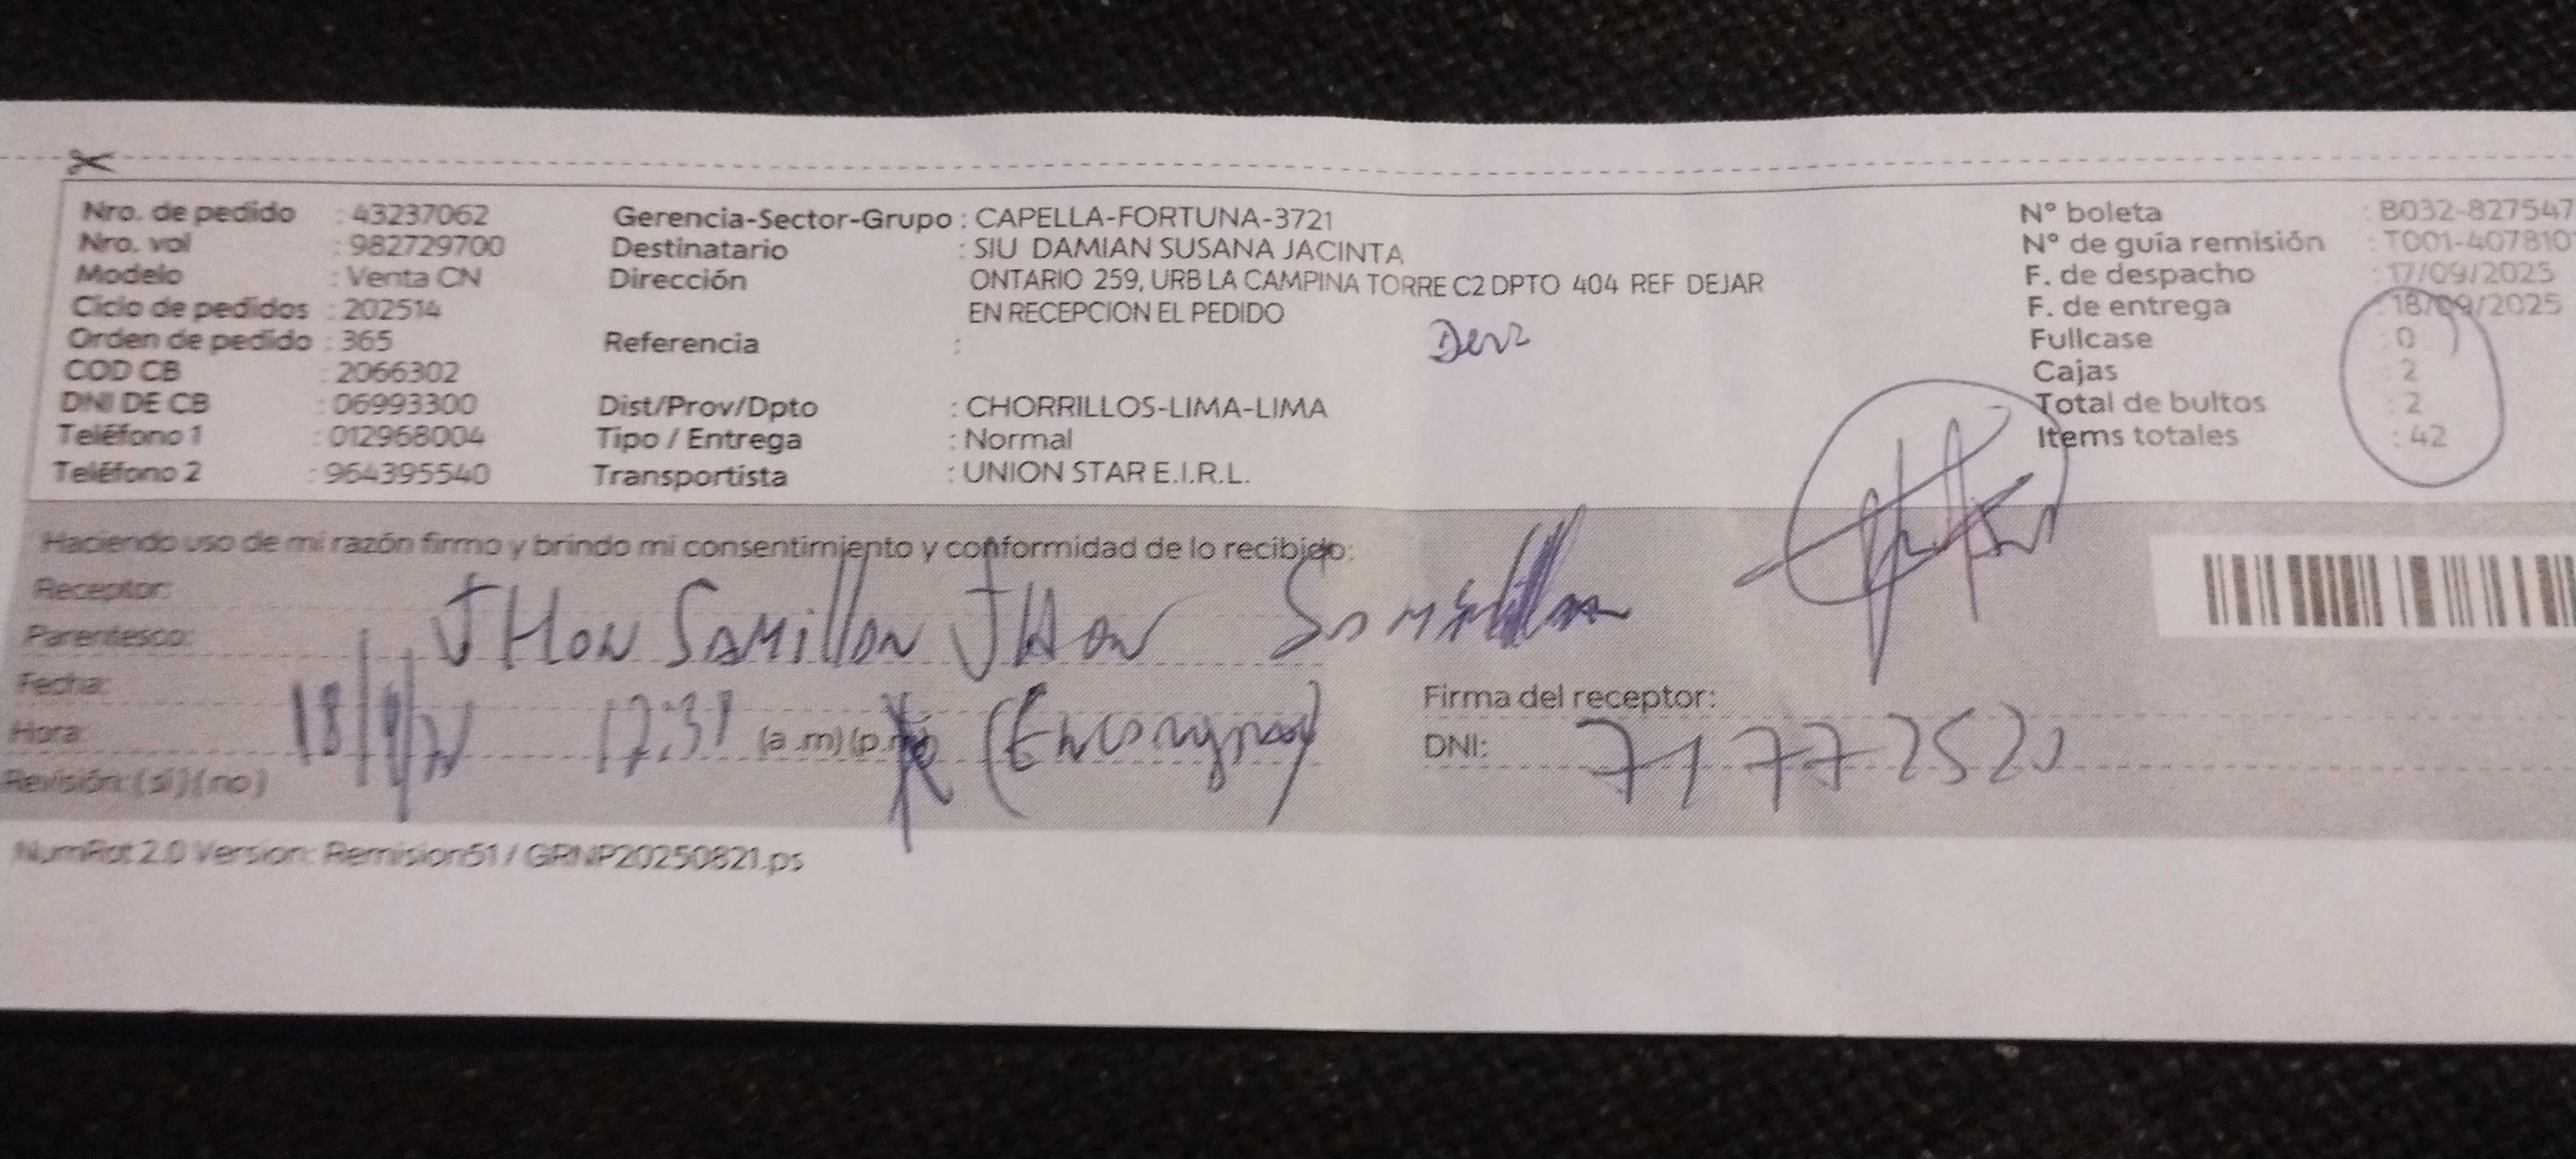 Nro. de pedido : 43237062
Nro. vol : 982729700
Modelo : Venta CN
Ciclo de pedidos : 202514
Orden de pedido : 365
COD CB : 2066302
DNI DE CB : 06993300
Teléfono 1 : 012968004
Teléfono 2 : 964395540
Gerencia-Sector-Grupo : CAPELLA-FORTUNA-3721
Destinatario : SIU DAMIAN SUSANA JACINTA
Dirección ONTARIO 259, URB LA CAMPINA TORRE C2 DPTO 404 REF DEJAR
EN RECEPCION EL PEDIDO
Referencia :
Dist/Prov/Dpto : CHORRILLOS-LIMA-LIMA
Tipo / Entrega : Normal
Transportista : UNION STAR E.I.R.L.
N° boleta : B032-827547
N° de guía remisión : T001-407810
F. de despacho : 17/09/2025
F. de entrega : 18/09/2025
Fullcase : 0
Cajas : 2
Total de bultos : 2
Items totales : 42
Haciendo uso de mi razón firmo y brindo mi consentimiento y conformidad de lo recibido:
Receptor:
JHon SAMillAN JHon
Parentesco:
Fecha:
Hora: (a.m) (p.m)
Revisión: (si) (no)
Firma del receptor:
DNI: 7177252
NumRot 2.0 Version: Remision51 / GRNP20250821.ps